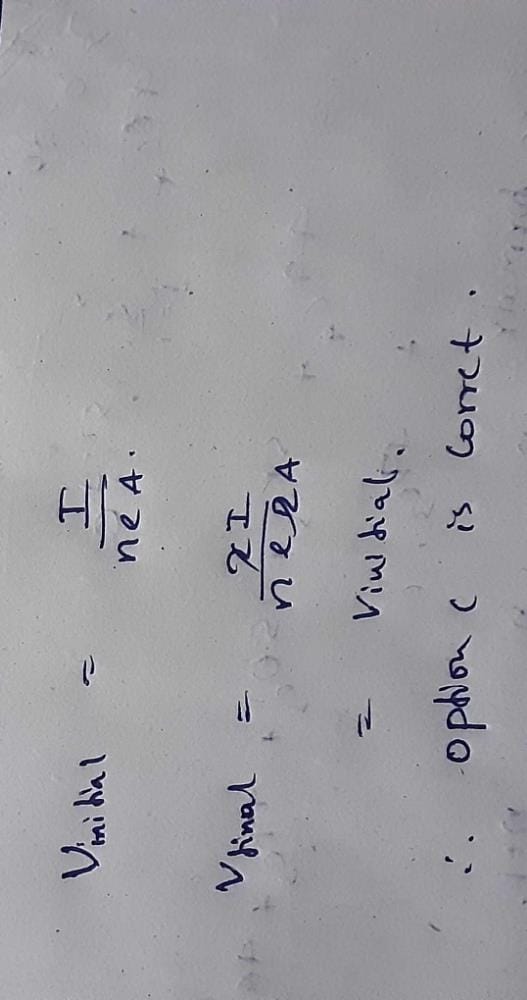 Vinitial = I / neA.
Vfinal = 2I / ne2A
= Vinitial.
∴ option c is correct.